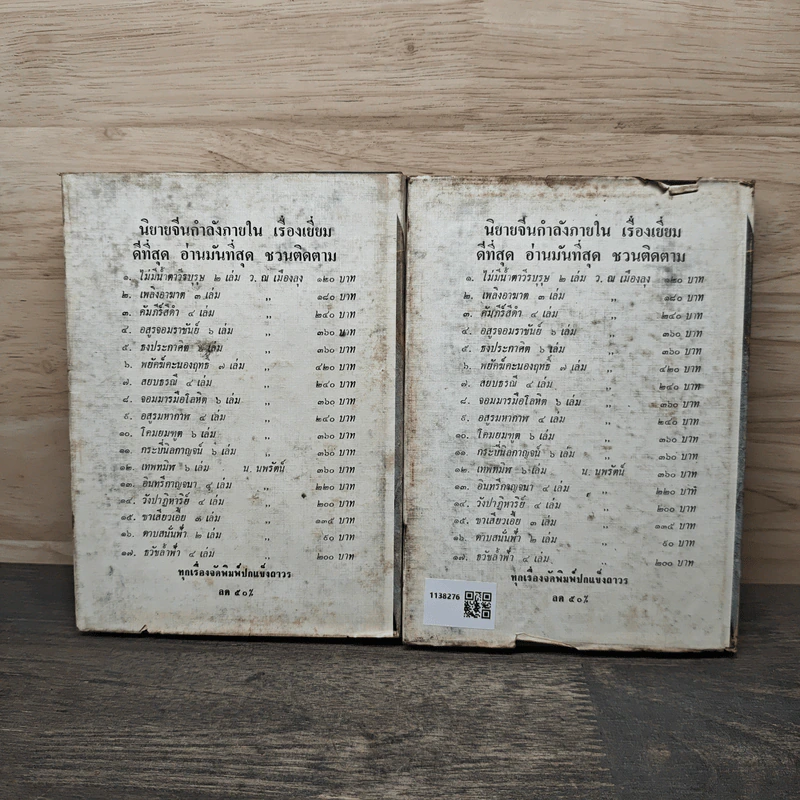 นิยายจีนกำลังภายใน เรื่องเยี่ยม
ดีที่สุด อ่านมันที่สุด ชวนติดตาม
๑. ไม่มีน้ำตาวีรบุรุษ ๒ เล่ม ว. ณ เมืองลุง ๑๒๐ บาท
๒. เพลิงอาฆาต ๓ เล่ม ,, ๑๘๐ บาท
๓. คัมภีร์สีดำ ๔ เล่ม ,, ๒๔๐ บาท
๔. อสูรจอมราชันย์ ๖ เล่ม ,, ๓๖๐ บาท
๕. ธงประกาศิต ๖ เล่ม ,, ๓๖๐ บาท
๖. พยัคฆ์คะนองฤทธิ์ ๗ เล่ม ,, ๔๒๐ บาท
๗. สยบธรณี ๔ เล่ม ,, ๒๔๐ บาท
๘. จอมมารมือโลหิต ๖ เล่ม ,, ๓๖๐ บาท
๙. อสูรมหากาฬ ๔ เล่ม ,, ๒๔๐ บาท
๑๐. โคมยมทูต ๖ เล่ม ,, ๓๖๐ บาท
๑๑. กระบี่นิลกาญจน์ ๖ เล่ม ,, ๓๖๐ บาท
๑๒. เทพทมิฬ ๖ เล่ม น. นพรัตน์ ๓๖๐ บาท
๑๓. อินทรีกาญจนา ๔ เล่ม ,, ๒๒๐ บาท
๑๔. วังปาฏิหาริย์ ๔ เล่ม ,, ๒๐๐ บาท
๑๕. ขาเสียวเอี้ย ๓ เล่ม ,, ๑๓๕ บาท
๑๖. ดาบสนั่นฟ้า ๒ เล่ม ,, ๙๐ บาท
๑๗. ธวัชล้ำฟ้า ๔ เล่ม ,, ๒๐๐ บาท
ทุกเรื่องจัดพิมพ์ปกแข็งถาวร
ลด ๕๐%
นิยายจีนกำลังภายใน เรื่องเยี่ยม
ดีที่สุด อ่านมันที่สุด ชวนติดตาม
๑. ไม่มีน้ำตาวีรบุรุษ ๒ เล่ม ว. ณ เมืองลุง ๑๒๐ บาท
๒. เพลิงอาฆาต ๓ เล่ม ,, ๑๘๐ บาท
๓. คัมภีร์สีดำ ๔ เล่ม ,, ๒๔๐ บาท
๔. อสูรจอมราชันย์ ๖ เล่ม ,, ๓๖๐ บาท
๕. ธงประกาศิต ๖ เล่ม ,, ๓๖๐ บาท
๖. พยัคฆ์คะนองฤทธิ์ ๗ เล่ม ,, ๔๒๐ บาท
๗. สยบธรณี ๔ เล่ม ,, ๒๔๐ บาท
๘. จอมมารมือโลหิต ๖ เล่ม ,, ๓๖๐ บาท
๙. อสูรมหากาฬ ๔ เล่ม ,, ๒๔๐ บาท
๑๐. โคมยมทูต ๖ เล่ม ,, ๓๖๐ บาท
๑๑. กระบี่นิลกาญจน์ ๖ เล่ม ,, ๓๖๐ บาท
๑๒. เทพทมิฬ ๖ เล่ม น. นพรัตน์ ๓๖๐ บาท
๑๓. อินทรีกาญจนา ๔ เล่ม ,, ๒๒๐ บาท
๑๔. วังปาฏิหาริย์ ๔ เล่ม ,, ๒๐๐ บาท
๑๕. ขาเสียวเอี้ย ๓ เล่ม ,, ๑๓๕ บาท
๑๖. ดาบสนั่นฟ้า ๒ เล่ม ,, ๙๐ บาท
๑๗. ธวัชล้ำฟ้า ๔ เล่ม ,, ๒๐๐ บาท
ทุกเรื่องจัดพิมพ์ปกแข็งถาวร
ลด ๕๐%
1138276